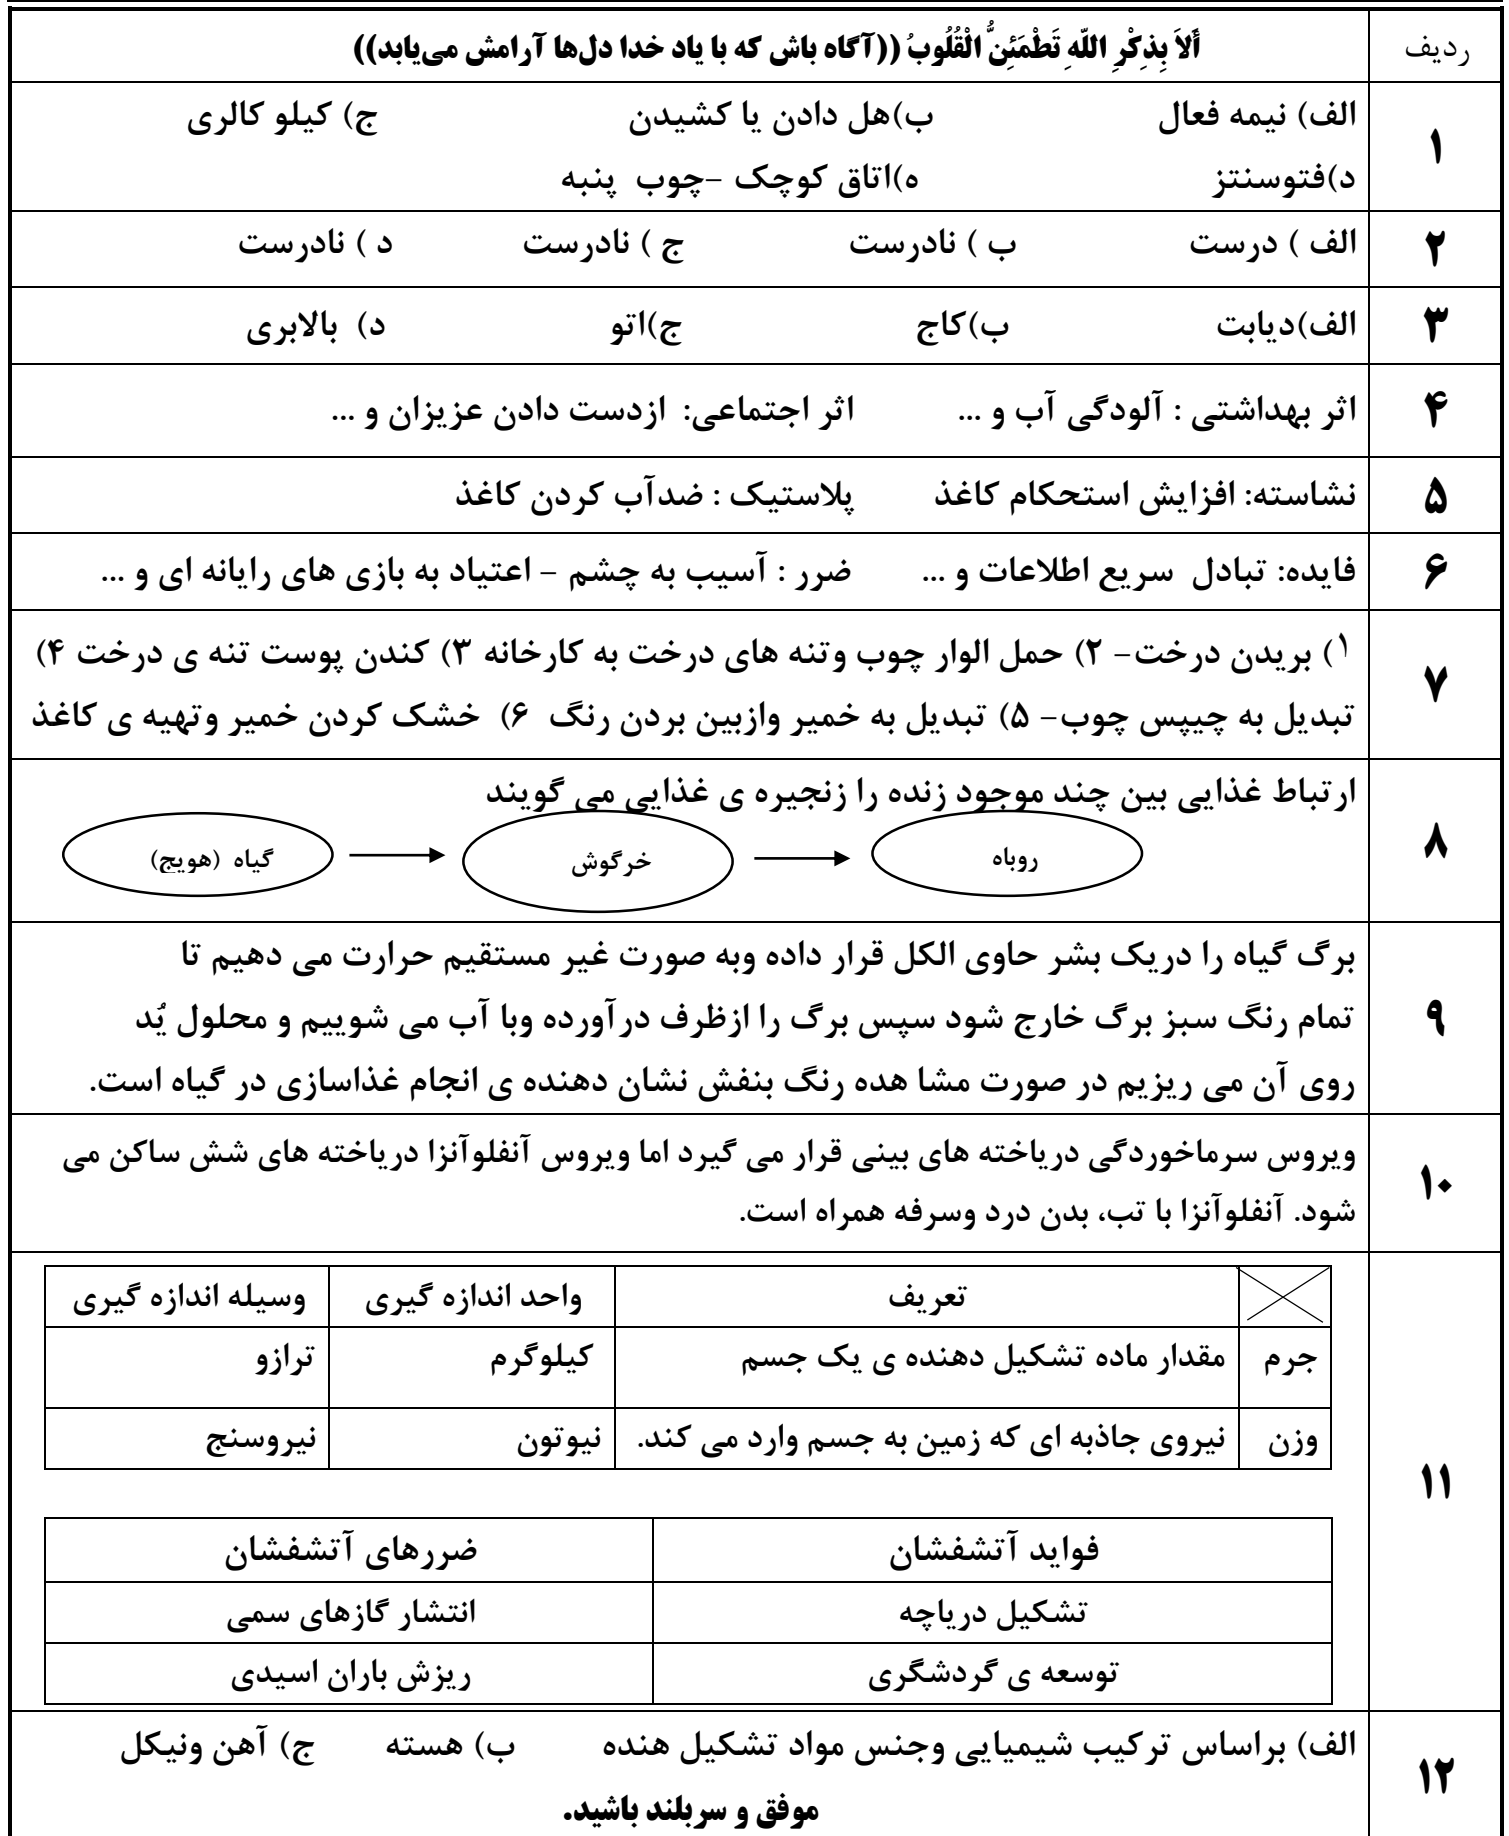 ردیف
أَلاَ بِذِكْرِ اللّهِ تَطْمَئِنُّ الْقُلُوبُ ((آگاه باش که با یاد خدا دل‌ها آرامش می‌یابد))
۱
الف) نیمه فعال ب)هل دادن یا کشیدن ج) کیلو کالری
د)فتوسنتز ه)اتاق کوچک –چوب پنبه
۲
الف ) درست ب ) نادرست ج ) نادرست د ) نادرست
۳
الف)دیابت ب)کاج ج)اتو د) بالابری
۴
اثر بهداشتی : آلودگی آب و ... اثر اجتماعی: ازدست دادن عزیزان و ...
۵
نشاسته: افزایش استحکام کاغذ پلاستیک : ضدآب کردن کاغذ
۶
فایده: تبادل سریع اطلاعات و ... ضرر : آسیب به چشم – اعتیاد به بازی های رایانه ای و ...
۷
۱) بریدن درخت– ۲) حمل الوار چوب وتنه های درخت به کارخانه ۳) کندن پوست تنه ی درخت ۴)
تبدیل به چیپس چوب– ۵) تبدیل به خمیر وازبین بردن رنگ ۶) خشک کردن خمیر وتهیه ی کاغذ
۸
ارتباط غذایی بین چند موجود زنده را زنجیره ی غذایی می گویند
روباه خرگوش گیاه (هویج)
۹
برگ گیاه را دریک بشر حاوی الکل قرار داده وبه صورت غیر مستقیم حرارت می دهیم تا
تمام رنگ سبز برگ خارج شود سپس برگ را ازظرف درآورده وبا آب می شوییم و محلول یُد
روی آن می ریزیم در صورت مشا هده رنگ بنفش نشان دهنده ی انجام غذاسازی در گیاه است.
۱۰
ویروس سرماخوردگی دریاخته های بینی قرار می گیرد اما ویروس آنفلوآنزا دریاخته های شش ساکن می
شود. آنفلوآنزا با تب، بدن درد وسرفه همراه است.
۱۱
تعریف واحد اندازه گیری وسیله اندازه گیری
جرم مقدار ماده تشکیل دهنده ی یک جسم کیلوگرم ترازو
وزن نیروی جاذبه ای که زمین به جسم وارد می کند. نیوتون نیروسنج
فواید آتشفشان ضررهای آتشفشان
تشکیل دریاچه انتشار گازهای سمی
توسعه ی گردشگری ریزش باران اسیدی
۱۲
الف) براساس ترکیب شیمیایی وجنس مواد تشکیل هنده ب) هسته ج) آهن ونیکل
موفق و سربلند باشید.